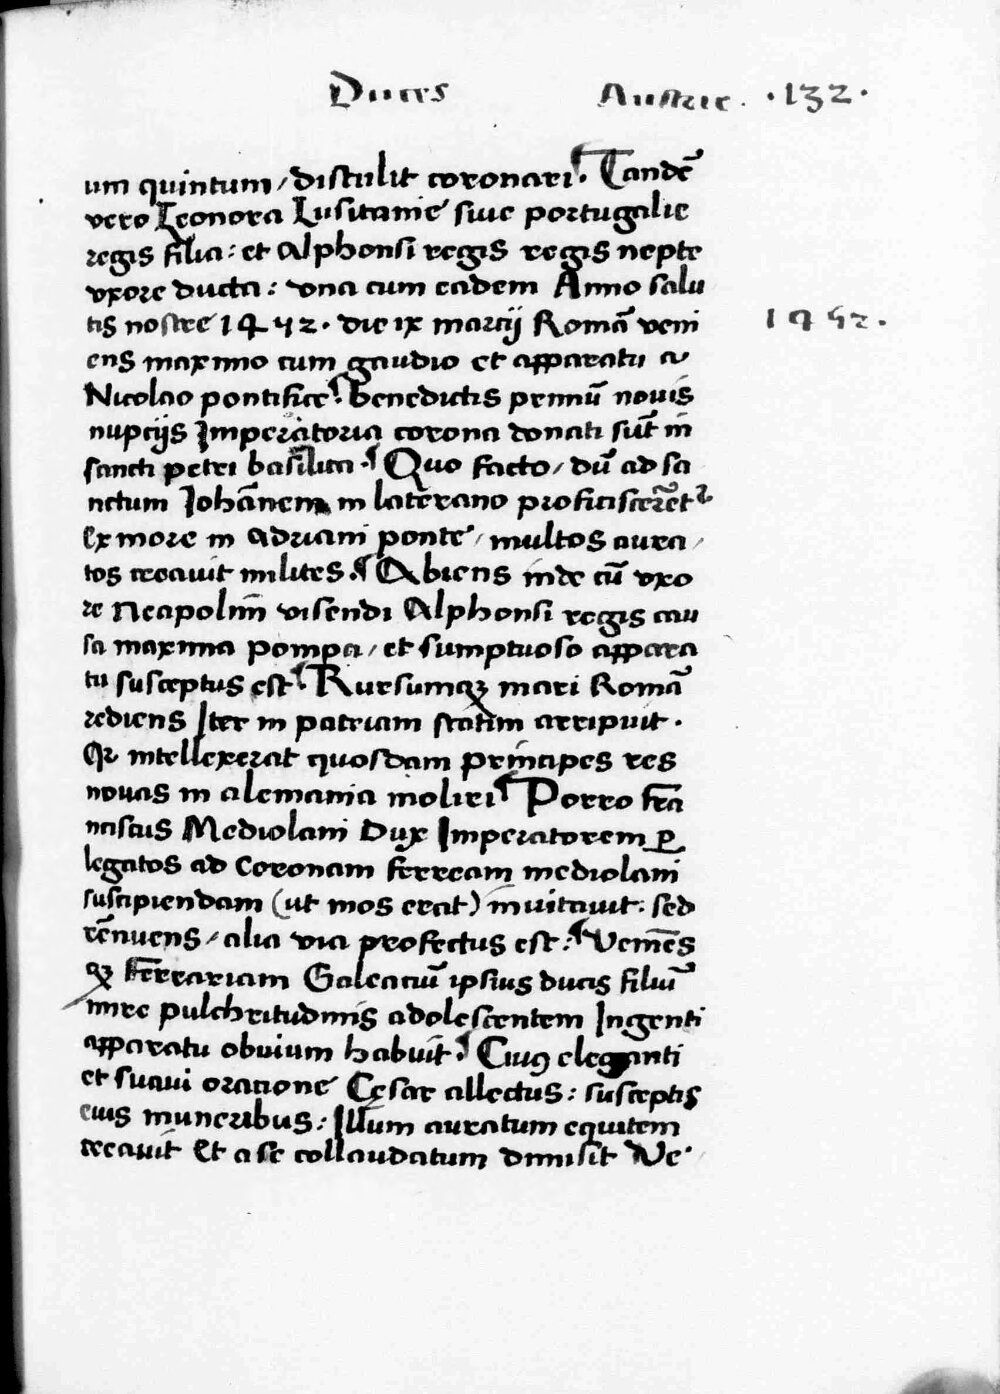 Duces Austrie. ·132·
um quintum / distulit coronari. Tandē
vero Leonora Lusitanie siue portugalie
regis filia: et Alphonsi regis regis nepte
vxore ducta: vna cum eadem Anno salu
tis nostre 1452. die ix marcij Romā veni
1452.
ens maximo cum gaudio et apparatu a
Nicolao pontifice. benedictis primū nouis
nupcijs Imperatoria corona donati sūt in
sancti petri basilica. Quo facto / dū ad sa
nctum Iohānem in laterano proficiscerēt
ex more in Adriani ponte / multos aura /
tos creauit milites. Abiens inde cū vxo
re Neapolim visendi Alphonsi regis cau
sa maxima pompa / et sumptuoso appara
tu susceptus est. Rursumqꝫ mari Romā
rediens Iter in patriam statim arripuit.
Qr intellexerat quosdam principes res
nouas in alemania moliri. Porro frā
nciscus Mediolani Dux Imperatorem ꝑ
legatos ad coronam ferream mediolani
suscipiendam (ut mos erat) inuitauit: sed
rēnuens / alia via profectus est: Veniēs
qꝫ ferrariam Galeaciū ipsius ducis filiū
mire pulchritudinis adolescentem Ingenti
apparatu obuium habuit. Cuiꝯ eleganti
et suaui oratione Cęsar allectus: susceptis
eius muneribus: Illum auratum equitem
creauit Et a se collaudatum dimisit Ve